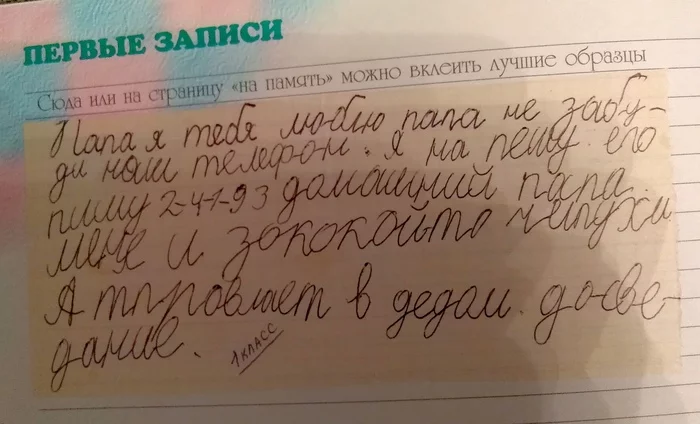 ПЕРВЫЕ ЗАПИСИ
Сюда или на страницу «на память» можно вклеить лучшие образцы
Папа я тебя люблю папа не забу-
ди наш телефон. я на пешу его
пишу 2-41-93 домошний папа.
меня и зококойто чепухи
Атпровлает в дедом. до све-
дание.
1 КЛАСС